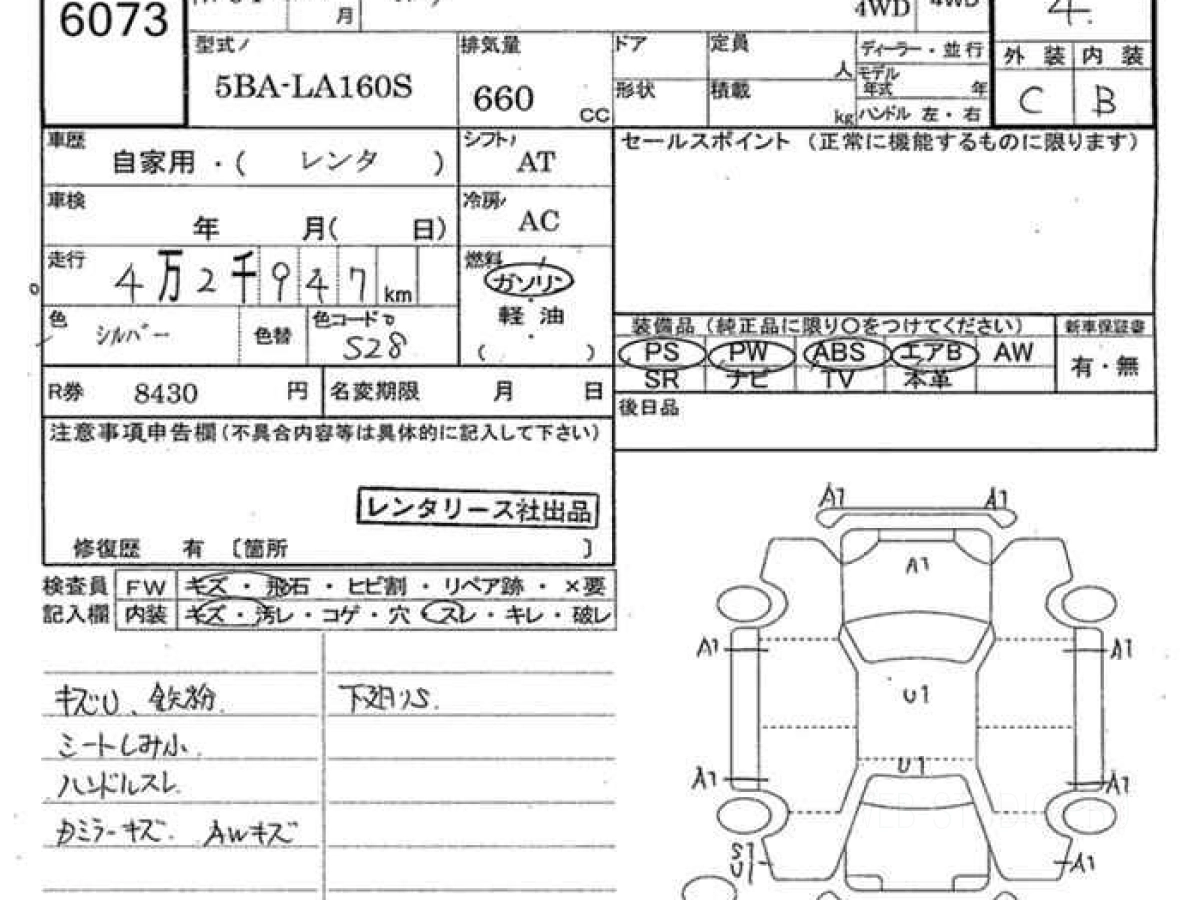 6073
月
4WD
4WD
4.
型式
5BA-LA160S
排気量
660
cc
ドア
定員
人
形状
積載
kg
ディーラー・並行
モデル
年式
年
ハンドル 左・右
外装
内装
C
B
車歴
自家用・( レンタ )
シフト
AT
セールスポイント (正常に機能するものに限ります)
車検
年 月( 日)
冷房
AC
走行
4万2千947km
燃料
ガソリン
軽油
( ・ )
色
シルバー
色替
色コードNo
S28
装備品 (純正品に限り○をつけてください)
新車保証書
PS PW ABS エアB AW
SR ナビ TV 本革
有・無
R券 8430 円
名変期限 月 日
後日品
注意事項申告欄(不具合内容等は具体的に記入して下さい)
レンタリース社出品
修復歴 有 〔箇所 〕
検査員
記入欄
FW キズ・飛石・ヒビ割・リペア跡・×要
内装 キズ・汚レ・コゲ・穴・スレ・キレ・破レ
キズU、鉄粉
下廻りS.
シートしみ小
ハンドルスレ
カミラーキズ. AWキズ
A1
A1
A1
A1
A1
U1
U1
A1
A1
S1
U1
A1